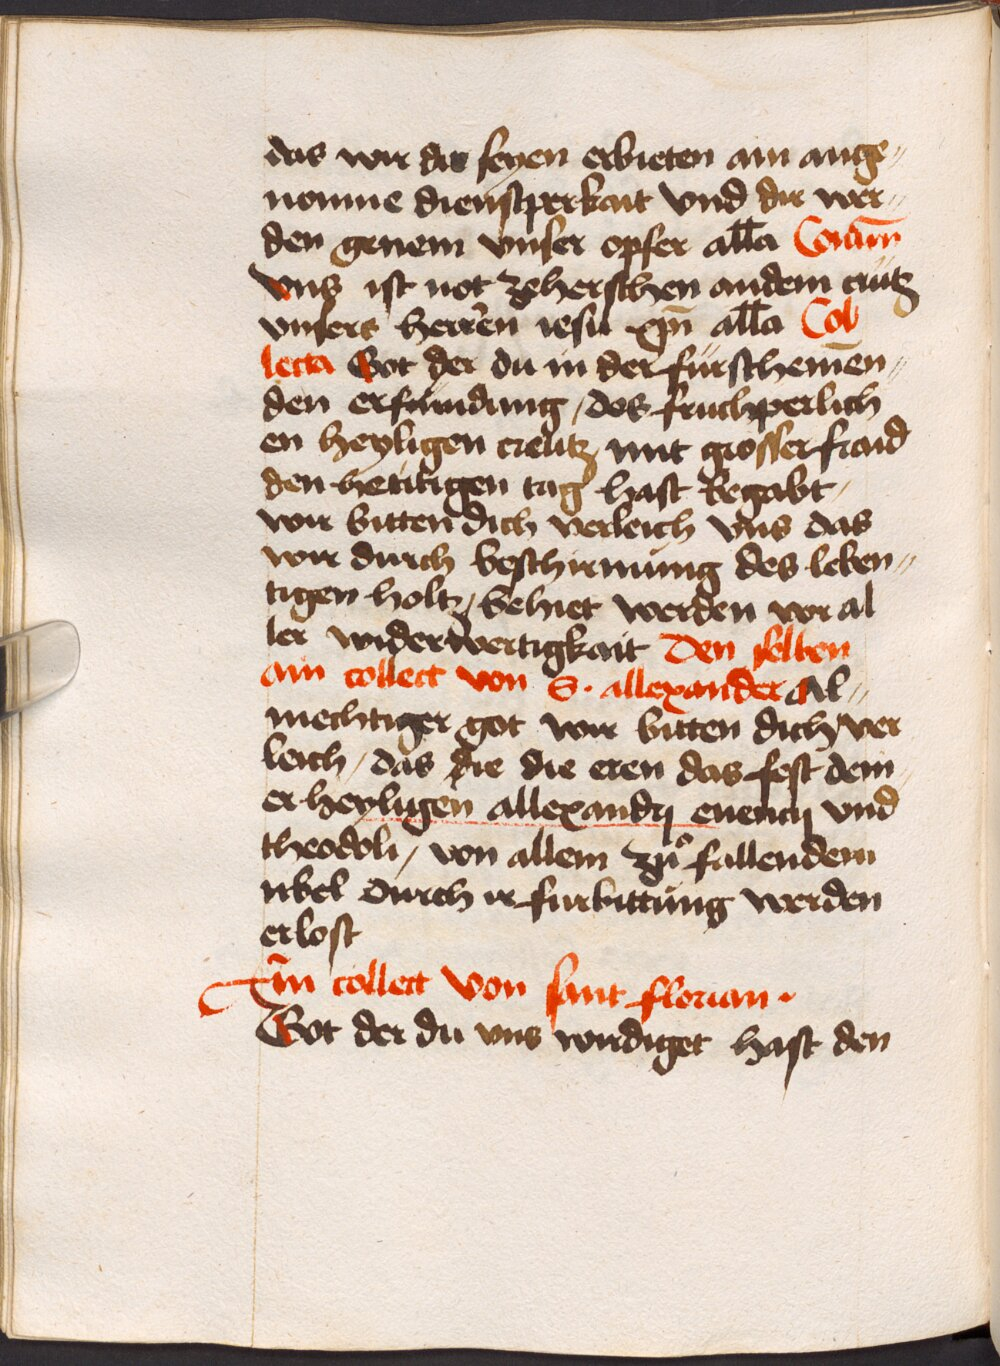 das wir dir seyen erbieten ain ange„
nomne dienstperkait vnd dir wer„
den genem vnser opfer alla̅
vns ist not zeherschen andem crütz
vnsers herren iesu xp̅i alla̅ Col
lecta Got der du in der fürscheinen„
den erfundung / des fruchperlich
en heyligen creütz / mit grosser fraid
den hetittigen tag hast begabt /
wir bitten dich verleich vns das
wir durch beschirmung des leben„
tigen holtz / behüet werden vor al
ler widerwertigkait Den selben
ain collect von S. allexander Al„
mechtiger got wir bitten dich / ver
leich / das die die eren das fest dein„
er heyligen allexandrj euencij vnd
theodoli / von allem zuͦ fallendem
übel durch ir fürbittung werden
erlost
Ain collect von sant florian .
Got der du vns wirdiget hast den